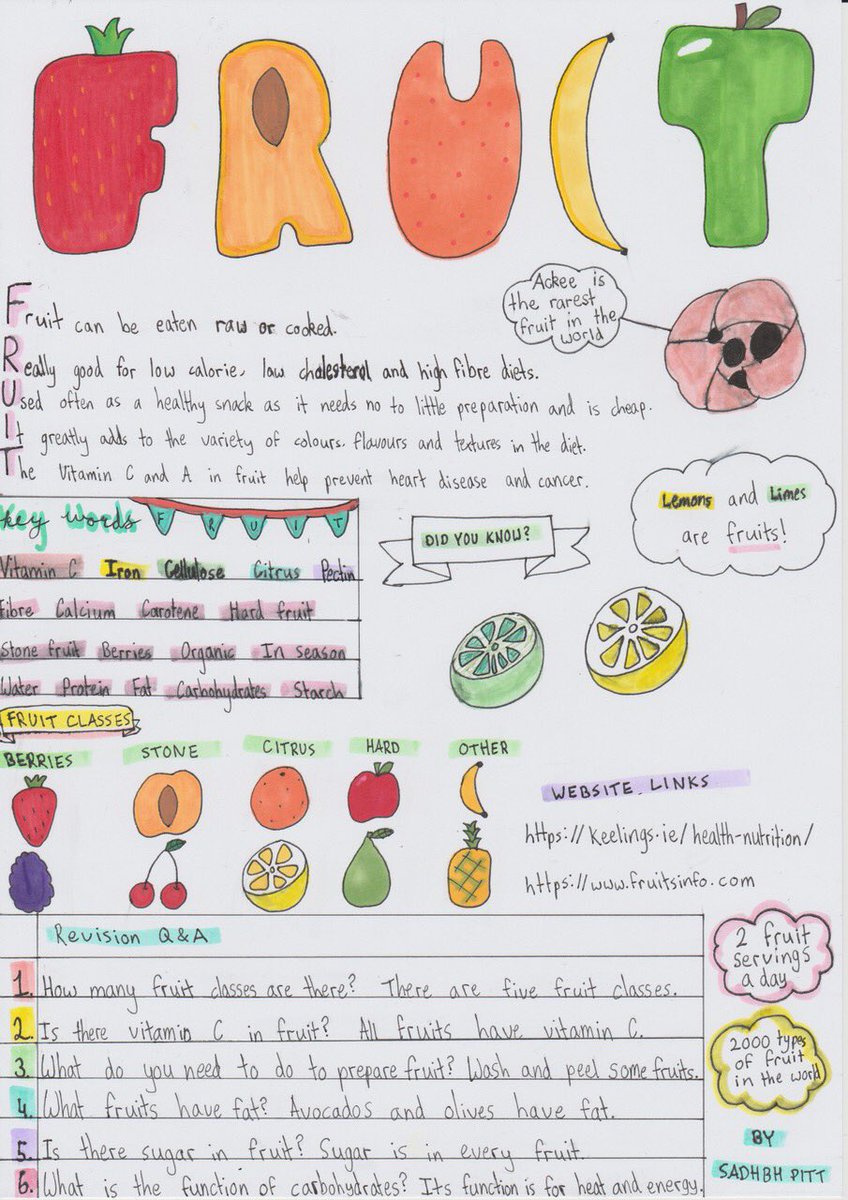 FRUIT
Ackee is
the rarest
fruit in the
world
Fruit can be eaten raw or cooked.
Really good for low calorie, low cholesterol and high fibre diets.
Used often as a healthy snack as it needs no to little preparation and is cheap.
It greatly adds to the variety of colours, flavours and textures in the diet.
The Vitamin C and A in fruit help prevent heart disease and cancer.
Key Words FRUIT
Vitamin C Iron Cellulose Citrus Pectin
Fibre Calcium Carotene Hard fruit
Stone fruit Berries Organic In season
Water Protein Fat Carbohydrates Starch
DID YOU KNOW?
Lemons and Limes
are fruits!
FRUIT CLASSES
BERRIES STONE CITRUS HARD OTHER
WEBSITE LINKS
https://keelings.ie/health-nutrition/
https://www.fruitsinfo.com
Revision Q&A
1. How many fruit classes are there? There are five fruit classes.
2. Is there vitamin C in fruit? All fruits have vitamin C.
3. What do you need to do to prepare fruit? Wash and peel some fruits.
4. What fruits have fat? Avocados and olives have fat.
5. Is there sugar in fruit? Sugar is in every fruit.
6. What is the function of carbohydrates? Its function is for heat and energy.
2 fruit
servings
a day
2000 types
of fruit
in the world
BY
SADHBH PITT